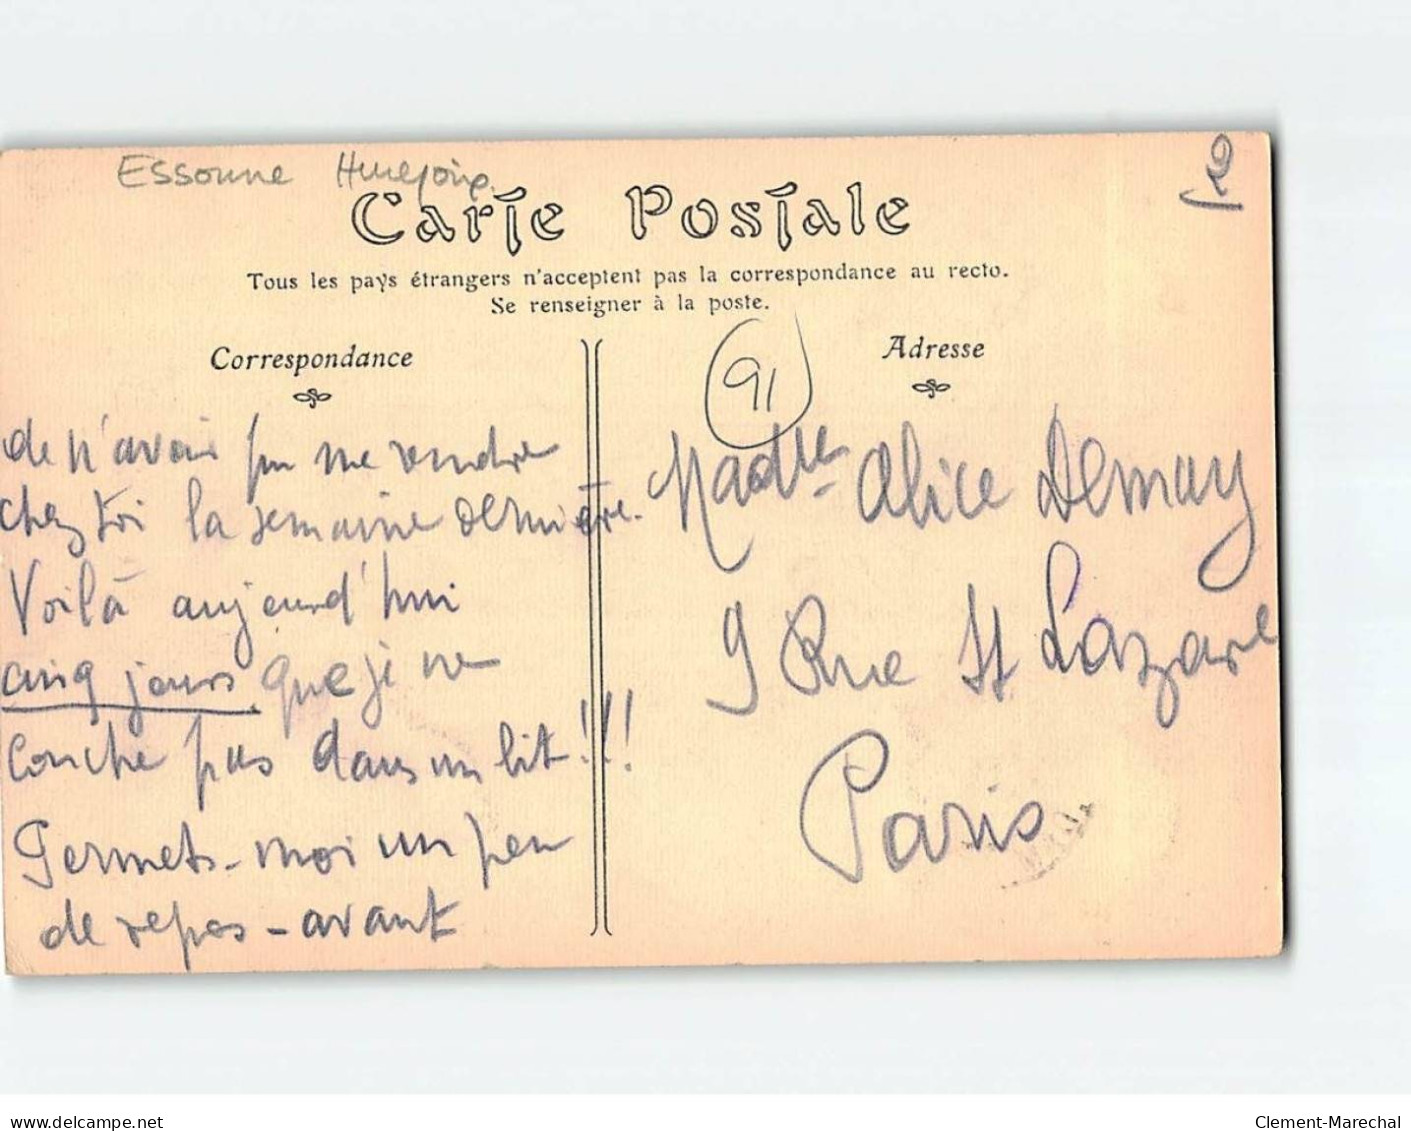 Essonne Hurepoix
Carte Postale
Tous les pays étrangers n'acceptent pas la correspondance au recto.
Se renseigner à la poste.
Correspondance
Adresse
91
de n'avoir pu me rendre
chez toi la semaine dernière.
Voilà aujourd'hui
cinq jours que je ne
couche pas dans un lit !!!
Permets-moi un peu
de repos - avant
Madlle Alice Demay
9 Rue St Lazare
Paris
www.delcampe.net
Clement-Marechal